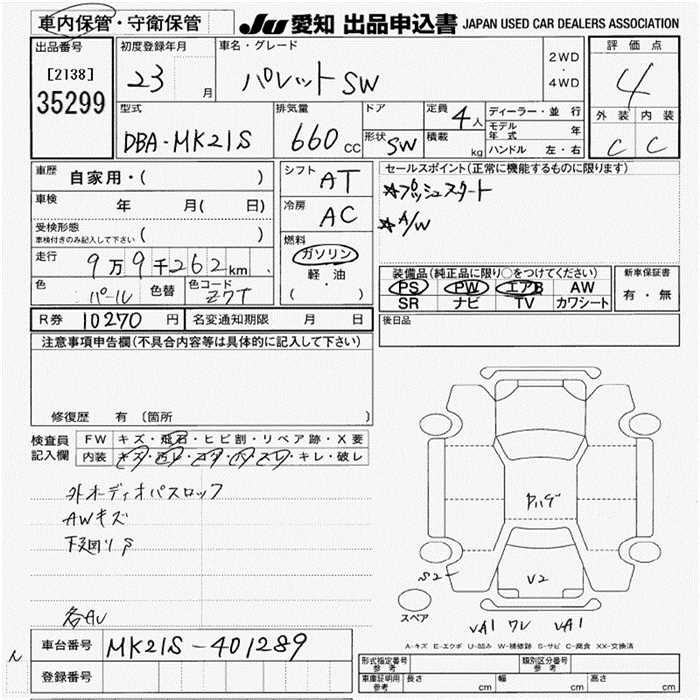 車内保管・守衛保管
JU 愛知 出品申込書 JAPAN USED CAR DEALERS ASSOCIATION
出品番号
[2138]
35299
初度登録年月
23 月
車名・グレード
パレット SW
2WD
・
4WD
評価点
4
外装 内装
C C
型式
DBA-MK21S
排気量
660 CC
ドア
形状 SW
定員 4人
積載 kg
ディーラー・並行
モデル年式 年
ハンドル 左・右
車歴
自家用・( )
車検 年 月( 日)
受検形態
車検付きのみ記入して下さい ( )
走行 9万9千262km
色 パール 色替 色コード Z7T
シフト AT
冷房 AC
燃料
ガソリン
軽油
( )
セールスポイント(正常に機能するものに限ります)
☆プッシュスタート
☆A/W
装備品(純正品に限り○をつけてください)
PS PW エアB AW
SR ナビ TV カワシート
新車保証書
有・無
R券 10270 円 名変通知期限 月 日
後日品
注意事項申告欄(不具合内容等は具体的に記入して下さい)
修復歴 有 〔箇所 〕
検査員記入欄
FW キズ・飛石・ヒビ割・リペア跡・X要
内装 キズ・汚レ・コゲ・ハ・スレ・キレ・破レ
外オーディオパスロック
AWキズ
下廻りS
各AU
S2
V2
スペア
VA1 VA1
A-キズ E-エクボ U-凹み W-補修跡 S-サビ C-腐食 XX-交換済
車台番号 MK21S-401289
登録番号
型式指定番号 参考 類別区分番号 参考
車庫証明用 参考 長さ cm 幅 cm 高さ cm